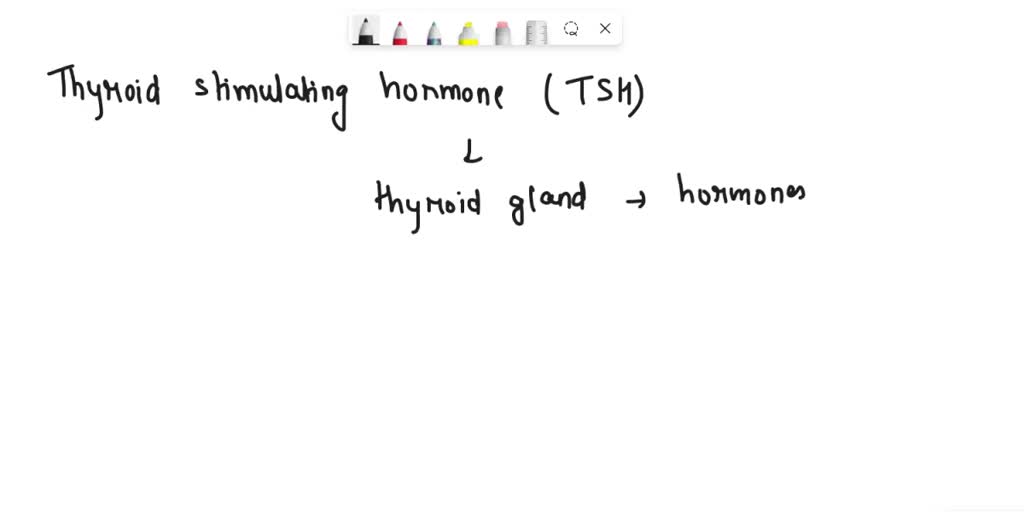 Thyroid stimulating hormone (TSH)
↓
thyroid gland → hormones